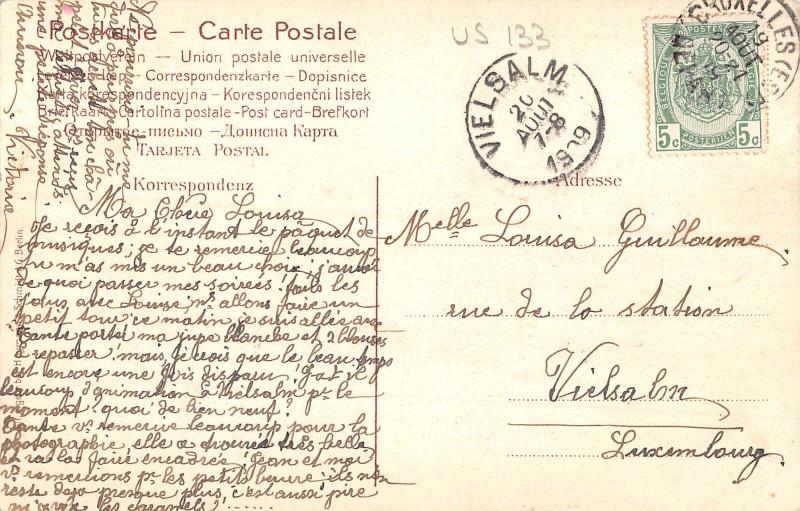 Postkarte — Carte Postale
Weltpostverein — Union postale universelle
Correspondenzkarte – Dopisnice
Korespondenční listek
Cartolina postale - Post card - Brefkort
Открытое-письмо — Дописна Карта
TARJETA POSTAL
Korrespondenz
Adresse
US 133
VIELSALM
20
AOUT
7-8
1909
BRUXELLES (EST
19
AOUT
BELGIQUE
POSTES
5c
5c
Ma Chère Louisa
Je reçois à l'instant le paquet de
musiques; je te remercie beaucoup
tu m'as mis un beau choix, j'aurai
de quoi passer mes soirées. Tous les
jours avec Louise ns allons faire un
petit tour, ce matin je suis allée avec
tante porter ma jupe blanche et 2 blouses
à repasser, mais je crois que le beau temps
est encore une fois disparu. Y a-t-il
beaucoup d'animation à Vielsalm pr le
moment, quoi de bien neuf.
Tante vs remercie beaucoup pour la
photographie, elle a trouvée très belle
et va la faire encadrée. Jean et moi
vs remercions pr les petits beurre, ils n'en
reste déjà presque plus, c'est aussi pire
qu'avec les caramels! ......
Melle Louisa Guillaume
rue de la station
Vielsalm
Luxembourg.